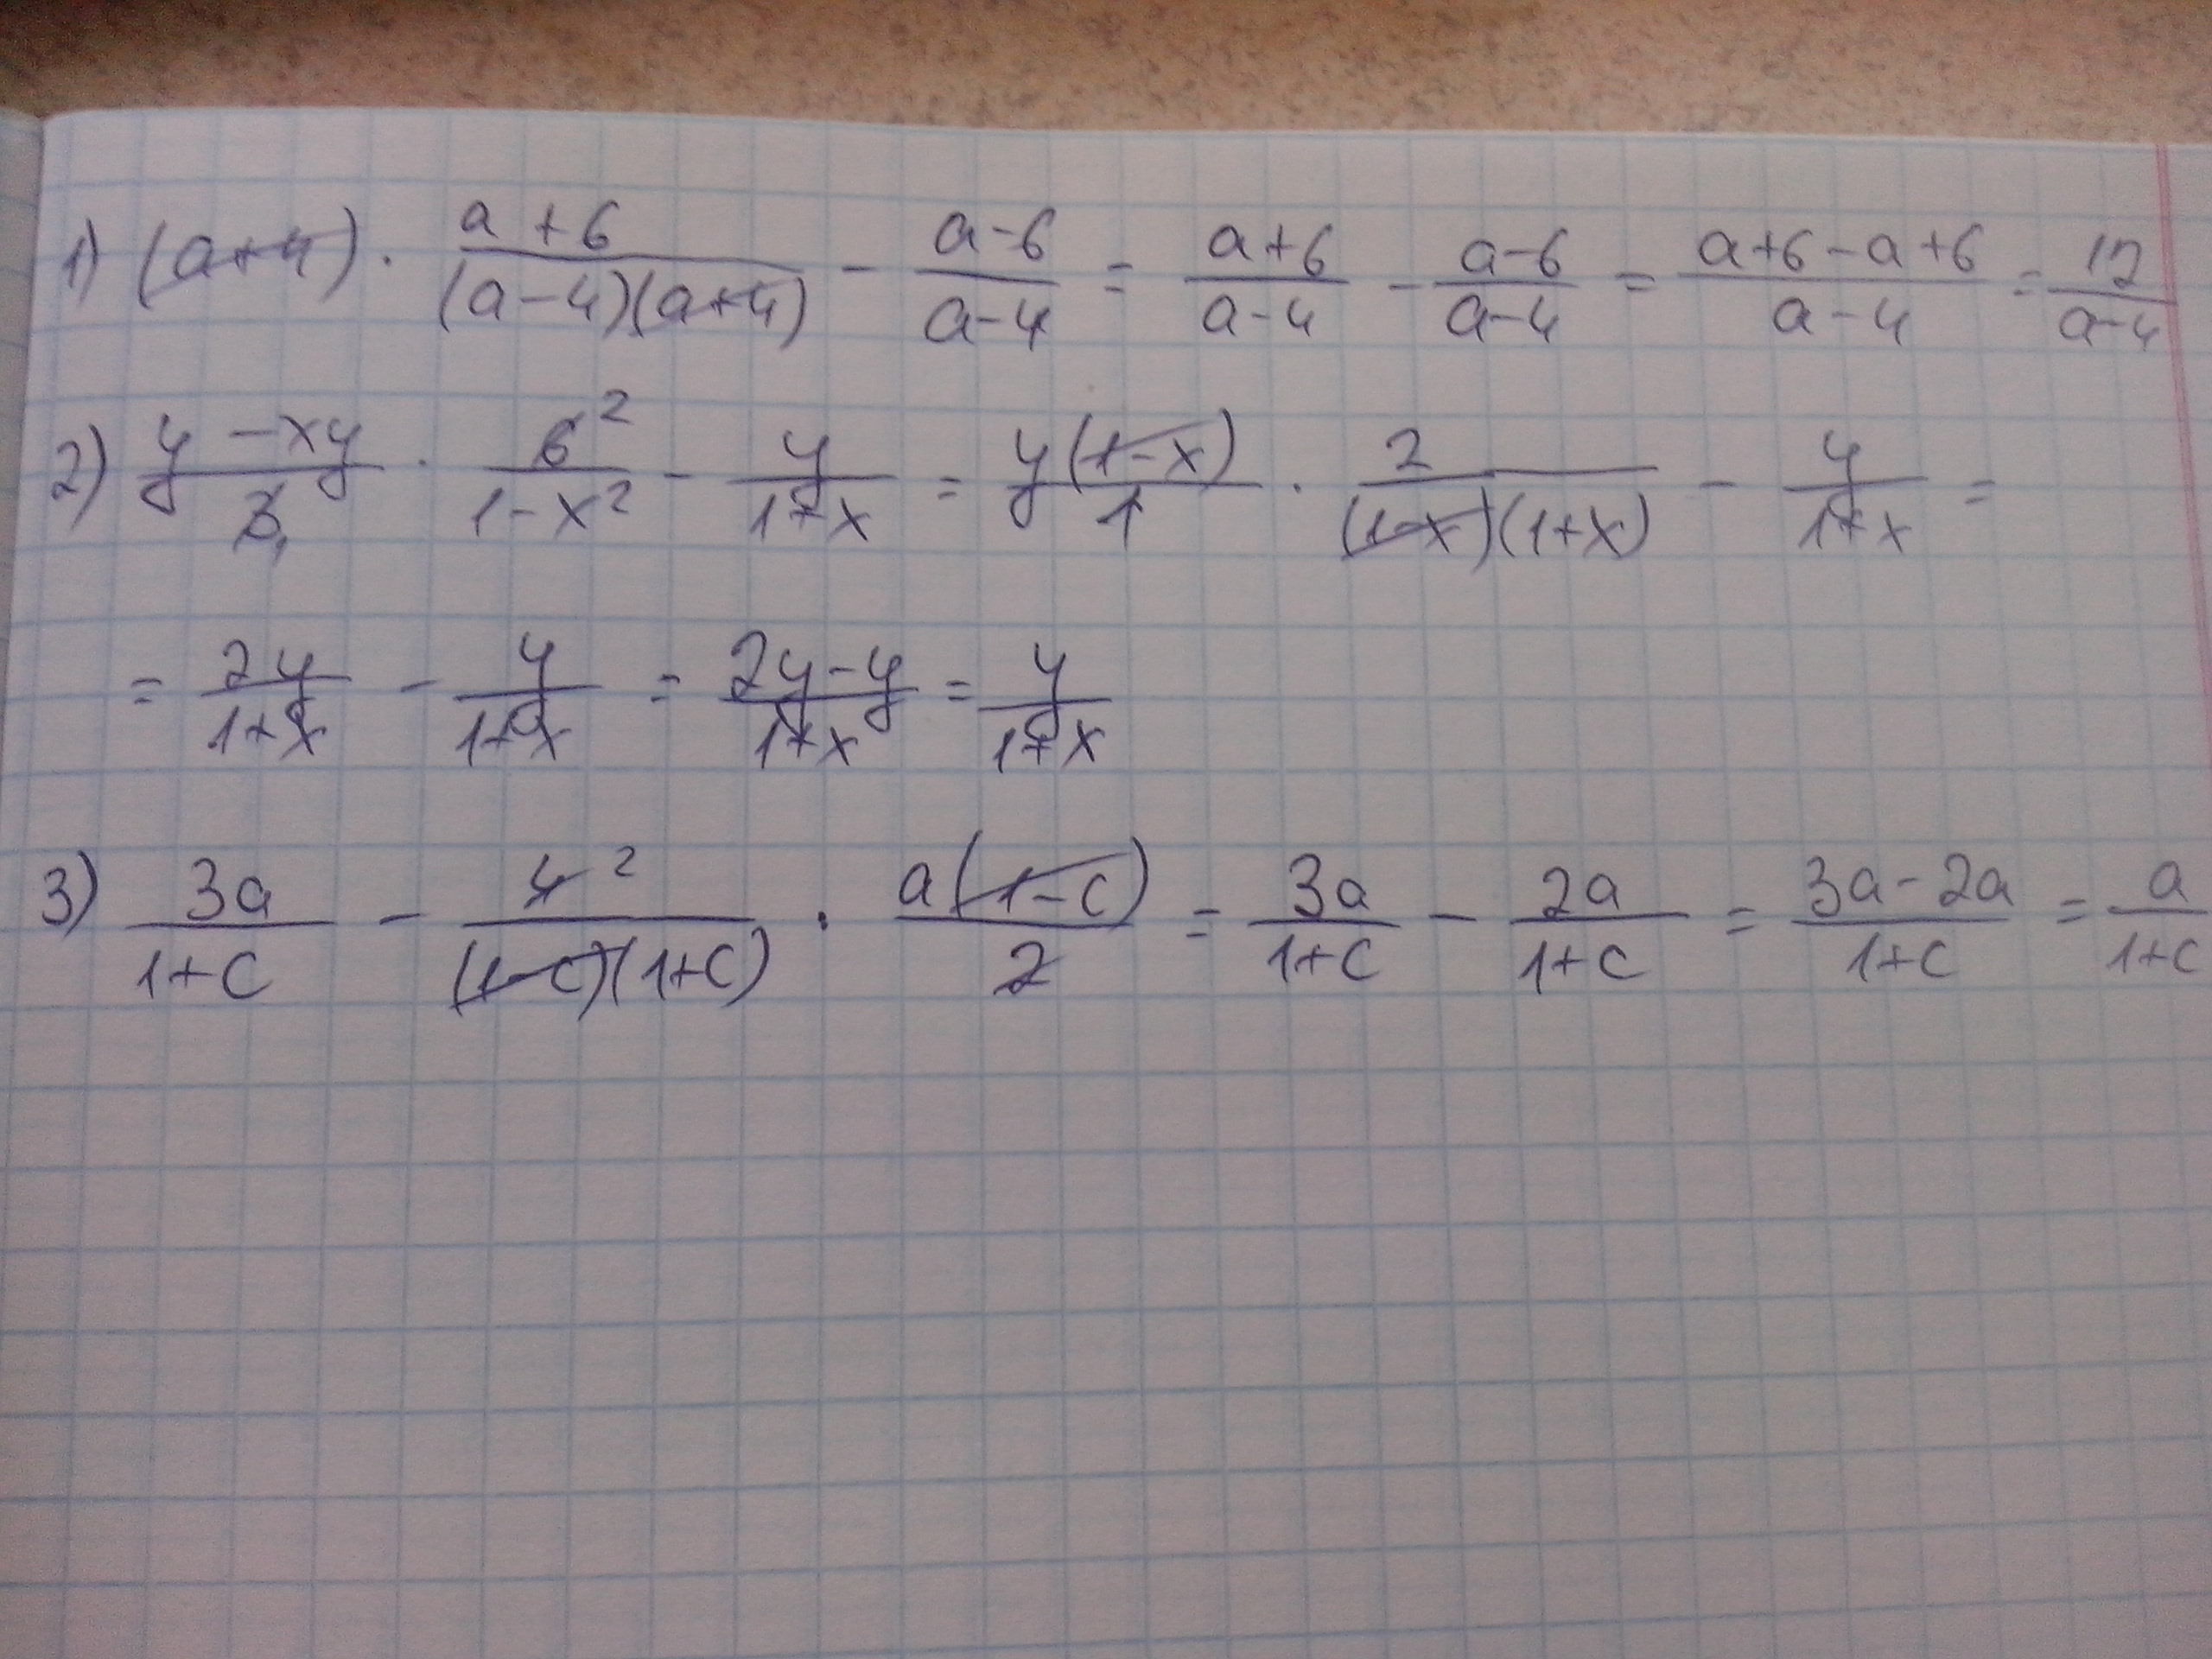 1) (a+4) · (a+6)/((a-4)(a+4)) - (a-6)/(a-4) = (a+6)/(a-4) - (a-6)/(a-4) = (a+6-a+6)/(a-4) = 12/(a-4)
2) (y-xy)/3 1 · 6 2/(1-x²) - y/(1+x) = y(1-x)/1 · 2/((1-x)(1+x)) - y/(1+x) =
= 2y/(1+x) - y/(1+x) = (2y-y)/(1+x) = y/(1+x)
3) 3a/(1+c) - 4 2/((1-c)(1+c)) · a(1-c)/2 = 3a/(1+c) - 2a/(1+c) = (3a-2a)/(1+c) = a/(1+c)